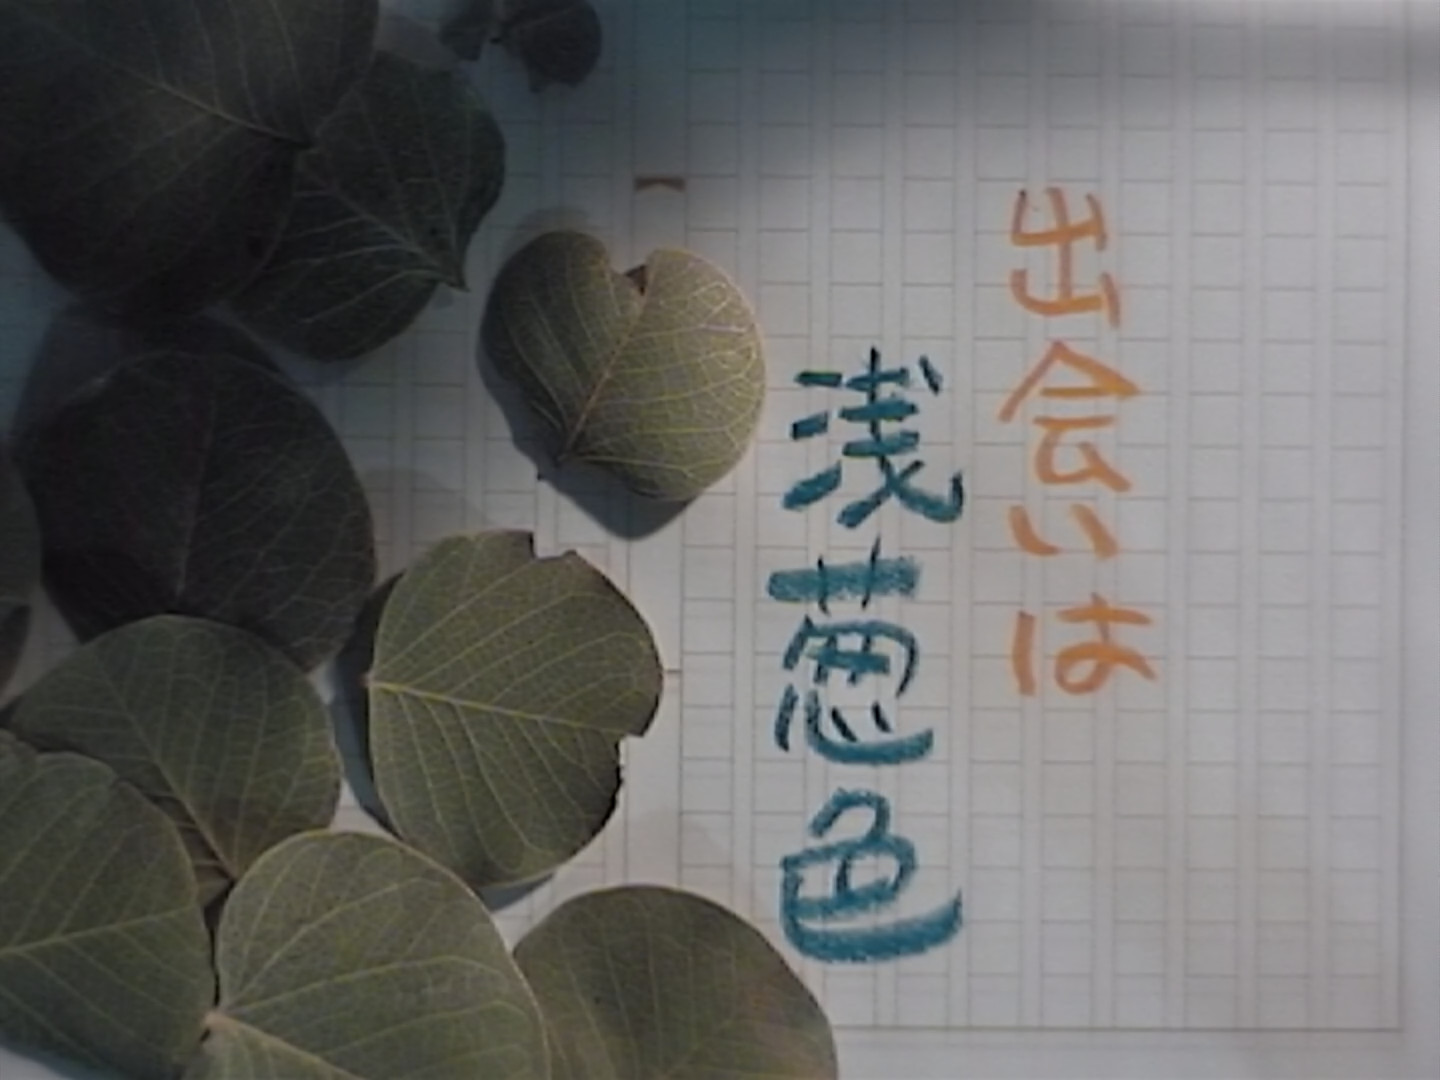 出会いは
浅葱色